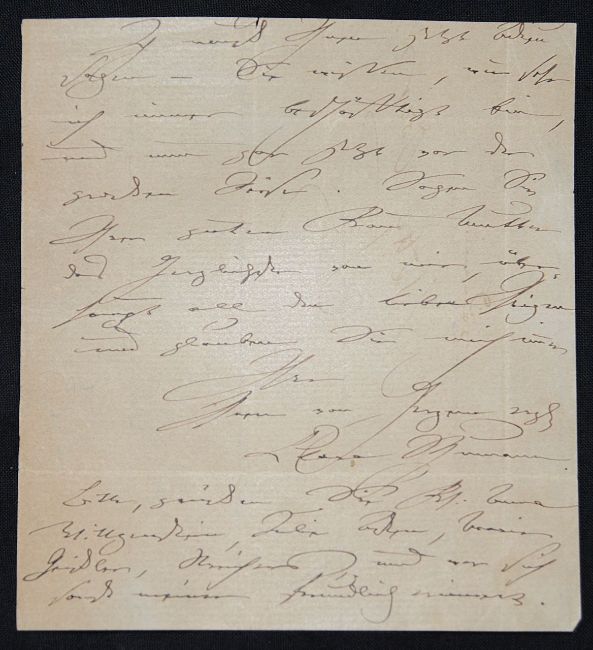 Ihnen jetzt
sagen — Sie wissen, wie sehr
ich immer beschäftigt bin,
und nun gar jetzt vor der
großen Reise. Sagen Sie
Ihrer guten Frau Mutter
das Herzlichste von mir, über¬
haupt all den lieben Ihrigen
und glauben Sie mich immer
Ihre
Ihnen von Herzen erg.
Clara Schumann.
Bitte, grüßen Sie Frl. Anna
Wittgenstein,
und wer sich
sonst meiner freundlich erinnert.